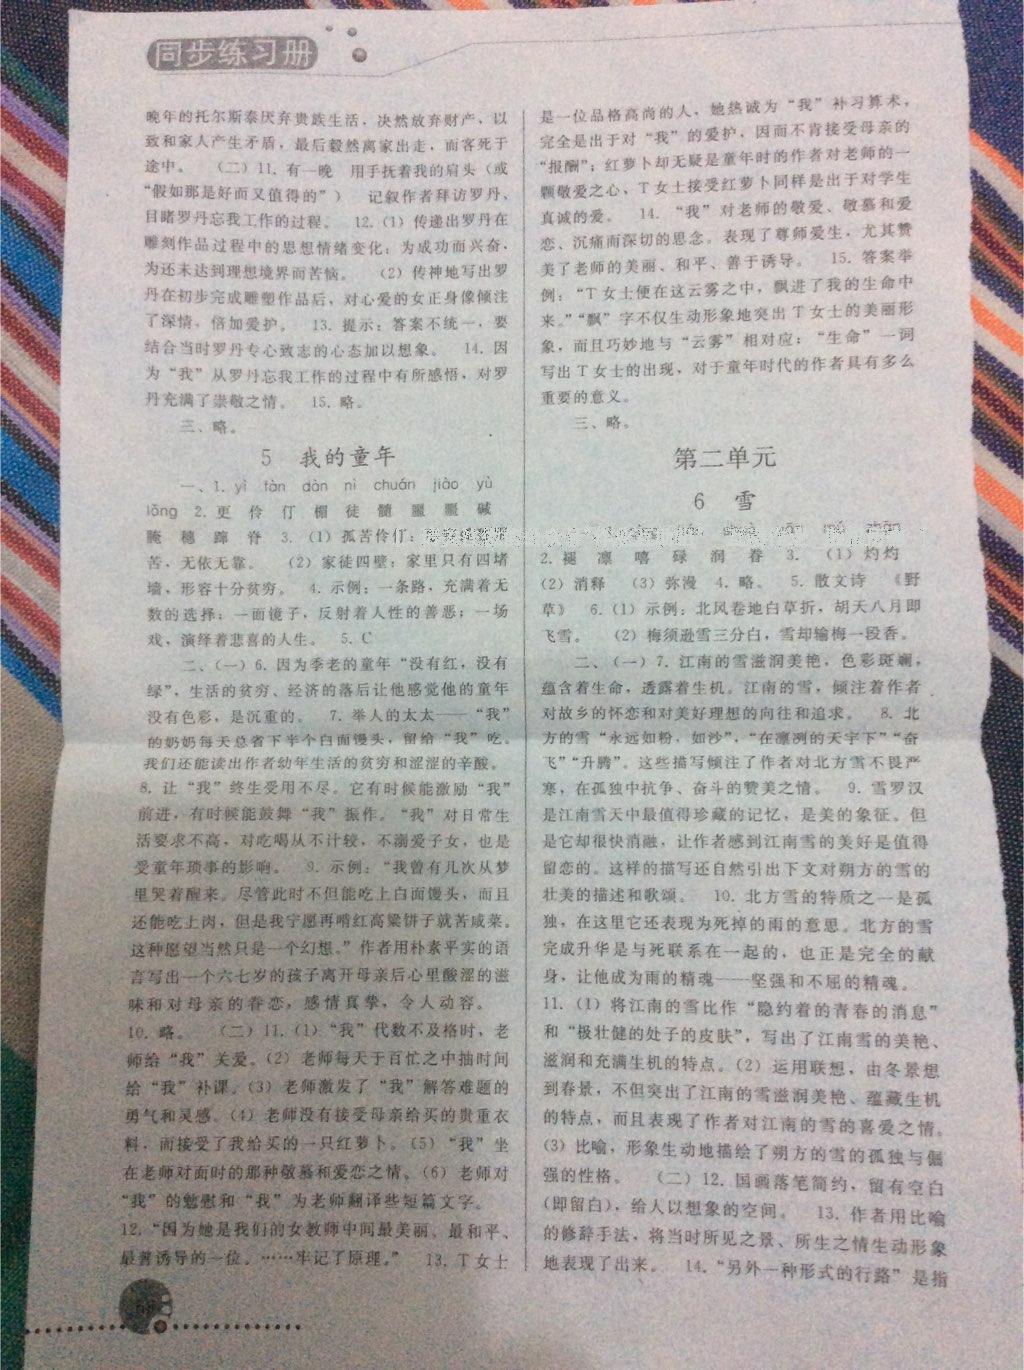 同步练习册
晚年的托尔斯泰厌弃贵族生活，决然放弃财产，以
致和家人产生矛盾，最后毅然离家出走，而客死于
途中。 （二）11. 有一晚 用手抚着我的肩头（或
“假如那是好而又值得的”） 记叙作者拜访罗丹，
目睹罗丹忘我工作的过程。 12.（1）传递出罗丹在
雕刻作品过程中的思想情绪变化：为成功而兴奋，
为还未达到理想境界而苦恼。 （2）传神地写出罗
丹在初步完成雕塑作品后，对心爱的女正身像倾注
了深情，倍加爱护。 13. 提示：答案不统一，要
结合当时罗丹专心致志的心态加以想象。 14. 因
为“我”从罗丹忘我工作的过程中有所感悟，对罗
丹充满了崇敬之情。 15. 略。
三、略。
5 我的童年
一、1. yì tàn dàn nì chuán jiào yù
lǒng 2. 更 伶 仃 楣 徒 髓 碱
腌 穗 蹄 脊 3.（1）孤苦伶仃：
苦，无依无靠。 （2）家徒四壁：家里只有四堵
墙，形容十分贫穷。 4. 示例：一条路，充满着无
数的选择；一面镜子，反射着人性的善恶；一场
戏，演绎着悲喜的人生。 5. C
二、（一）6. 因为季老的童年“没有红，没有
绿”，生活的贫穷、经济的落后让他感觉他的童年
没有色彩，是沉重的。 7. 举人的太太——“我”
的奶奶每天总省下半个白面馒头，留给“我”吃。
我们还能读出作者幼年生活的贫穷和涩涩的辛酸。
8. 让“我”终生受用不尽。它有时候能激励“我”
前进，有时候能鼓舞“我”振作。“我”对日常生
活要求不高，对吃喝从不计较，不溺爱子女，也是
受童年琐事的影响。 9. 示例：“我曾有几次从梦
里哭着醒来。尽管此时不但能吃上白面馒头，而且
还能吃上肉，但是我宁愿再啃红高粱饼子就苦咸菜。
这种愿望当然只是一个幻想。”作者用朴素平实的语
言写出一个六七岁的孩子离开母亲后心里酸涩的滋
味和对母亲的眷恋，感情真挚，令人动容。
10. 略。 （二）11.（1）“我”代数不及格时，老
师给“我”关爱。（2）老师每天于百忙之中抽时间
给“我”补课。（3）老师激发了“我”解答难题的
勇气和灵感。（4）老师没有接受母亲给买的贵重衣
料，而接受了我给买的一只红萝卜。（5）“我”坐
在老师对面时的那种敬慕和爱恋之情。（6）老师对
“我”的勉慰和“我”为老师翻译些短篇文字。
12.“因为她是我们的女教师中间最美丽、最和平、
最善诱导的一位。……牢记了原理。” 13. T女士
是一位品格高尚的人，她热诚为“我”补习算术，
完全是出于对“我”的爱护，因而不肯接受母亲的
“报酬”；红萝卜却无疑是童年时的作者对老师的一
颗敬爱之心，T女士接受红萝卜同样是出于对学生
真诚的爱。 14. “我”对老师的敬爱、敬慕和爱
恋、沉痛而深切的思念。表现了尊师爱生，尤其赞
美了老师的美丽、和平、善于诱导。 15. 答案举
例：“T女士便在这云雾之中，飘进了我的生命中
来。”“飘”字不仅生动形象地突出T女士的美丽形
象，而且巧妙地与“云雾”相对应；“生命”一词
写出T女士的出现，对于童年时代的作者具有多么
重要的意义。
三、略。
第二单元
6 雪
2. 褪 凛 嘻 碌 润 眷 3. （1）灼灼
（2）消释 （3）弥漫 4. 略。 5. 散文诗 《野
草》 6.（1）示例：北风卷地白草折，胡天八月即
飞雪。 （2）梅须逊雪三分白，雪却输梅一段香。
二、（一）7. 江南的雪滋润美艳，色彩斑斓，
蕴含着生命，透露着生机。江南的雪，倾注着作者
对故乡的怀恋和对美好理想的向往和追求。 8. 北
方的雪“永远如粉，如沙”，“在凛冽的天宇下”“奋
飞”“升腾”。这些描写倾注了作者对北方雪不畏严
寒，在孤独中抗争、奋斗的赞美之情。 9. 雪罗汉
是江南雪天中最值得珍藏的记忆，是美的象征。但
是它却很快消融，让作者感到江南雪的美好是值得
留恋的。这样的描写还自然引出下文对朔方的雪的
壮美的描述和歌颂。 10. 北方雪的特质之一是孤
独，在这里它还表现为死掉的雨的意思。北方的雪
完成升华是与死联系在一起的，也正是完全的献
身，让他成为雨的精魂——坚强和不屈的精魂。
11.（1）将江南的雪比作“隐约着的青春的消息”
和“极壮健的处子的皮肤”，写出了江南雪的美艳、
滋润和充满生机的特点。（2）运用联想，由冬景想
到春景，不但突出了江南的雪滋润美艳、蕴藏生机
的特点，而且表现了作者对江南的雪的喜爱之情。
（3）比喻，形象生动地描绘了朔方的雪的孤独与倔
强的性格。 （二）12. 国画落笔简约，留有空白
（即留白），给人以想象的空间。 13. 作者用比喻
的修辞手法，将当时所见之景、所生之情生动形象
地表现了出来。 14.“另外一种形式的行路”是指